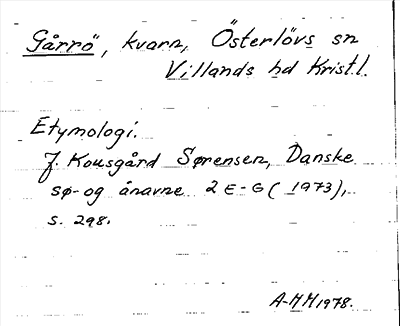 Gårrö, kvarn, Österlövs sn
Villands hd Krist.l.
Etymologi.
J. Kousgård Sørensen, Danske
sø- og ånavne 2 E-G (1973),
s. 298.
A-MM 1978.